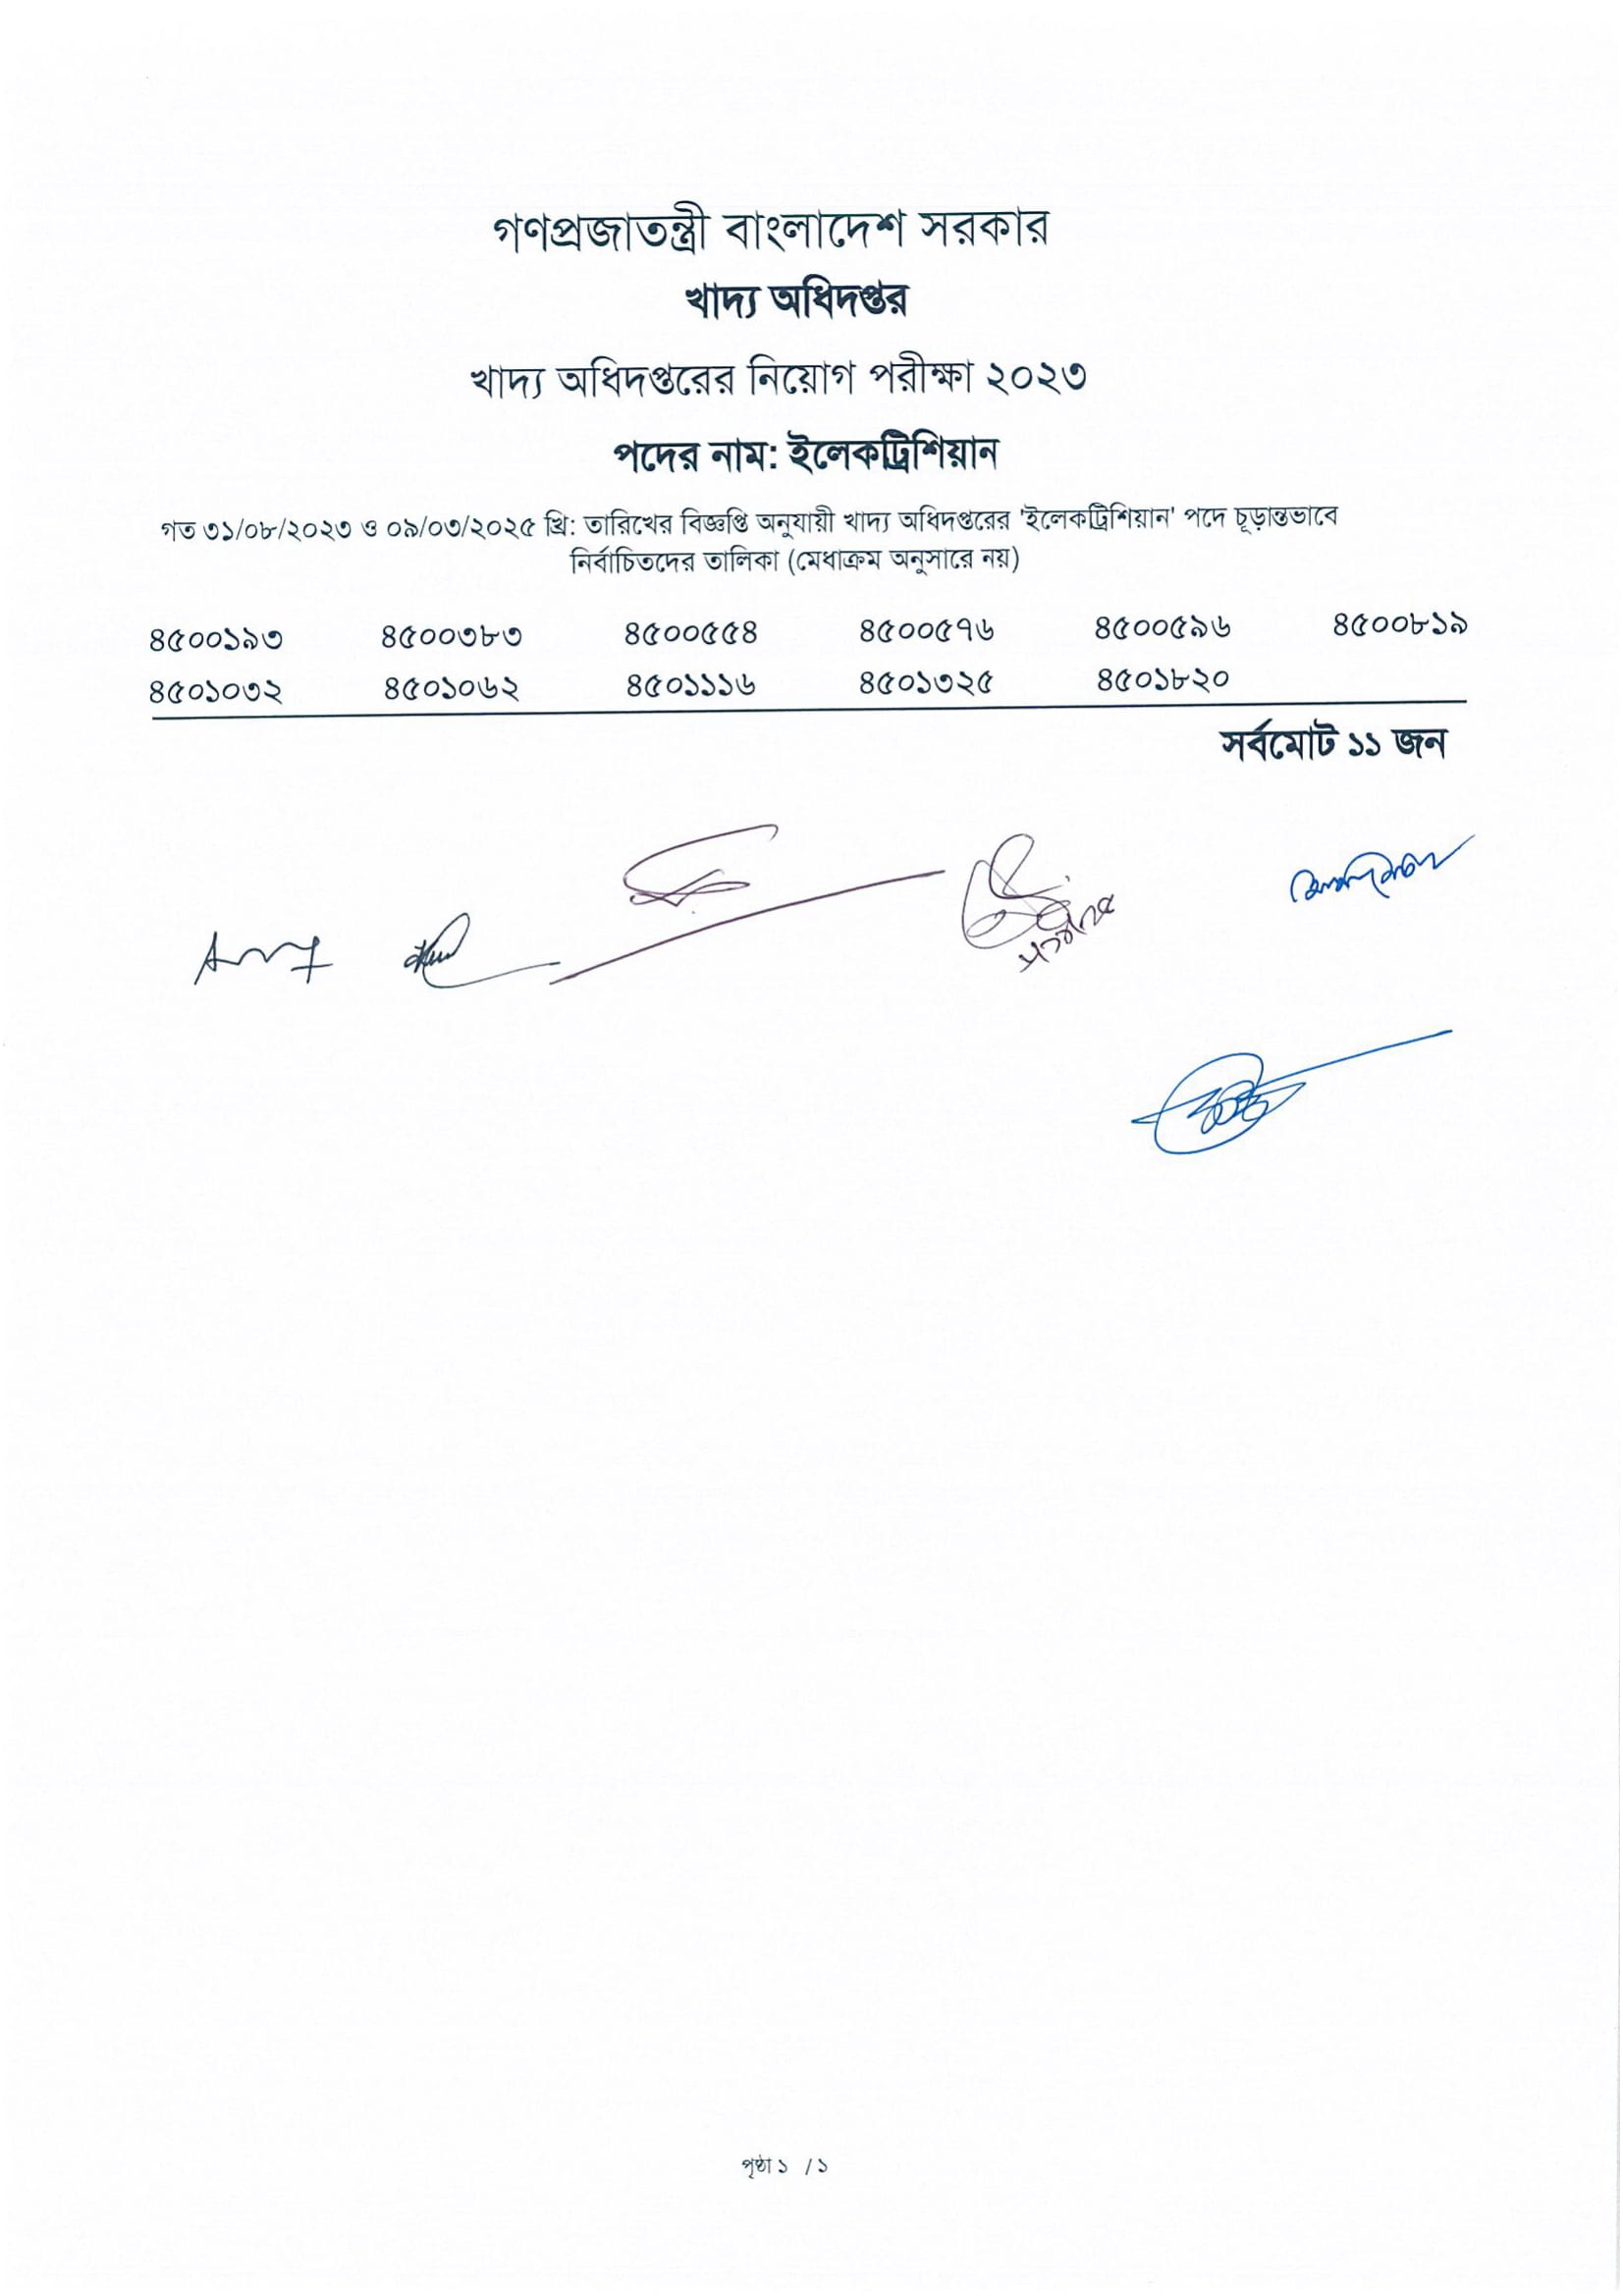 গণপ্রজাতন্ত্রী বাংলাদেশ সরকার
খাদ্য অধিদপ্তর
খাদ্য অধিদপ্তরের নিয়োগ পরীক্ষা ২০২৩
পদের নাম: ইলেকট্রিশিয়ান
গত ৩১/০৮/২০২৩ ও ০৯/০৩/২০২৫ খ্রি: তারিখের বিজ্ঞপ্তি অনুযায়ী খাদ্য অধিদপ্তরের 'ইলেকট্রিশিয়ান' পদে চূড়ান্তভাবে
নির্বাচিতদের তালিকা (মেধাক্রম অনুসারে নয়)
৪৫০০১৯৩ ৪৫০০৩৮৩ ৪৫০০৫৫৪ ৪৫০০৫৭৬ ৪৫০০৫৯৬ ৪৫০০৮১৯
৪৫০১০৩২ ৪৫০১০৬২ ৪৫০১১১৬ ৪৫০১৩২৫ ৪৫০১৮২০
সর্বমোট ১১ জন
পৃষ্ঠা ১ / ১